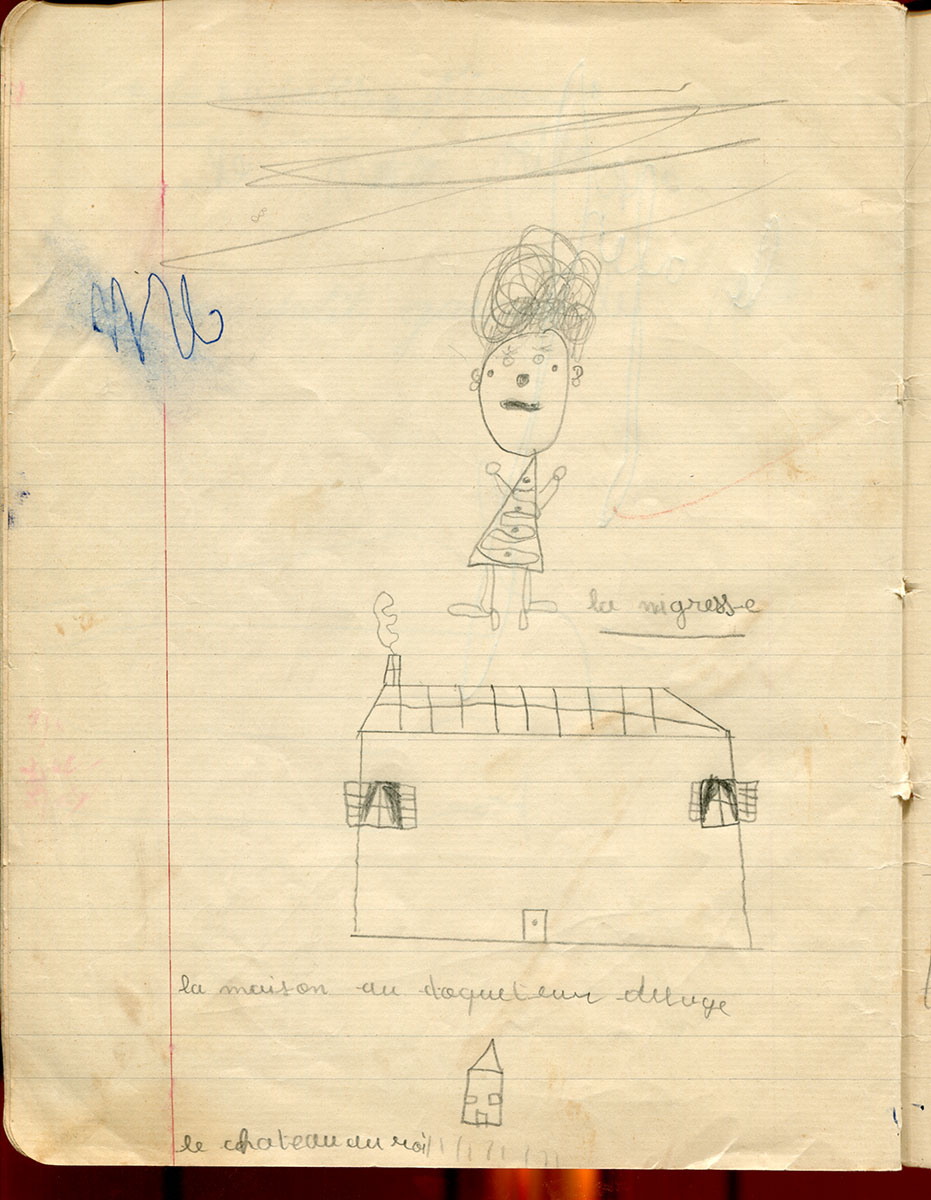 la nigresse
la maison du doqueteur deluge
le chateau du roi